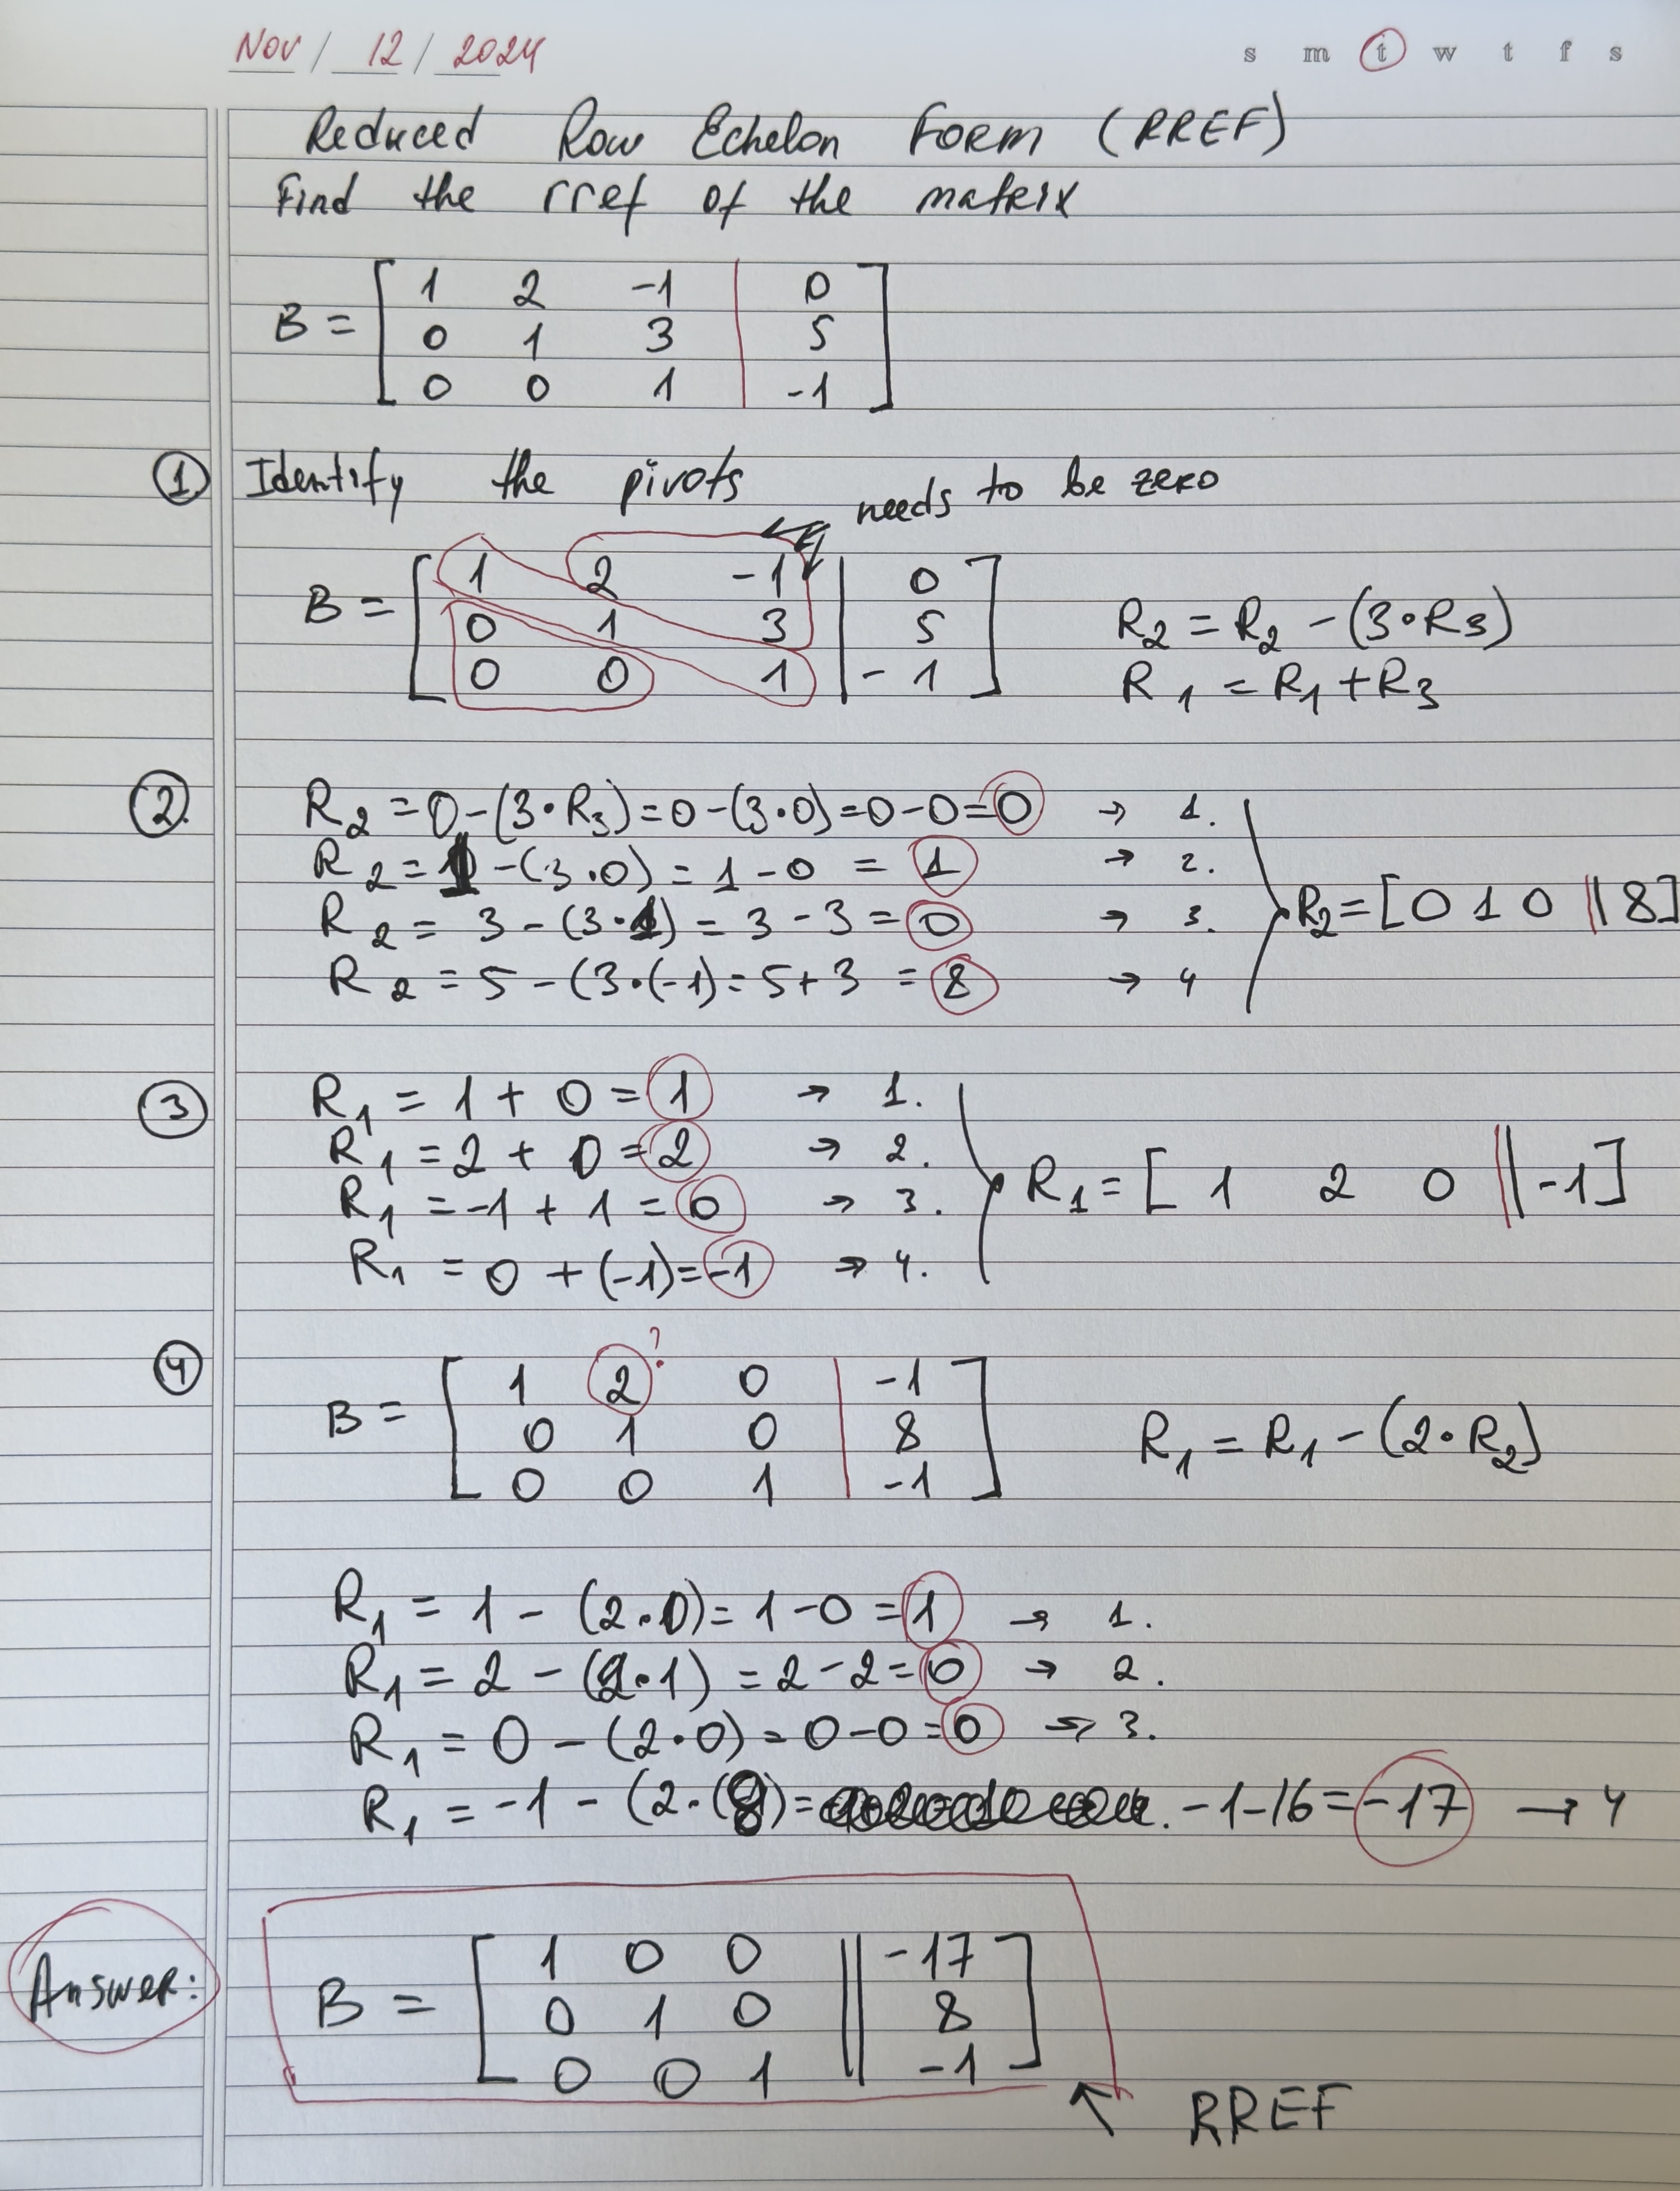 Nov / 12 / 2024 s m t w t f s
Reduced Row Echelon Form (RREF)
Find the rref of the matrix
B = [ 1 2 -1 | 0
0 1 3 | 5
0 0 1 | -1 ]
① Identify the pivots
needs to be zero
B = [ 1 2 -1 | 0
0 1 3 | 5
0 0 1 | -1 ]
R2 = R2 - (3•R3)
R1 = R1 + R3
② R2 = 0 - (3•R3) = 0 - (3•0) = 0 - 0 = 0 → 1.
R2 = 1 - (3•0) = 1 - 0 = 1 → 2.
R2 = 3 - (3•1) = 3 - 3 = 0 → 3.
R2 = 5 - (3•(-1) = 5 + 3 = 8 → 4
R2 = [0 1 0 || 8]
③ R1 = 1 + 0 = 1 → 1.
R1 = 2 + 0 = 2 → 2.
R1 = -1 + 1 = 0 → 3.
R1 = 0 + (-1) = -1 → 4.
R1 = [ 1 2 0 || -1]
④ B = [ 1 2? 0 | -1
0 1 0 | 8
0 0 1 | -1 ]
R1 = R1 - (2•R2)
R1 = 1 - (2•0) = 1 - 0 = 1 → 1.
R1 = 2 - (2•1) = 2 - 2 = 0 → 2.
R1 = 0 - (2•0) = 0 - 0 = 0 → 3.
R1 = -1 - (2•(8) = -1 - 16 = -17 → 4
Answer: B = [ 1 0 0 || -17
0 1 0 || 8
0 0 1 || -1 ]
↖ RREF